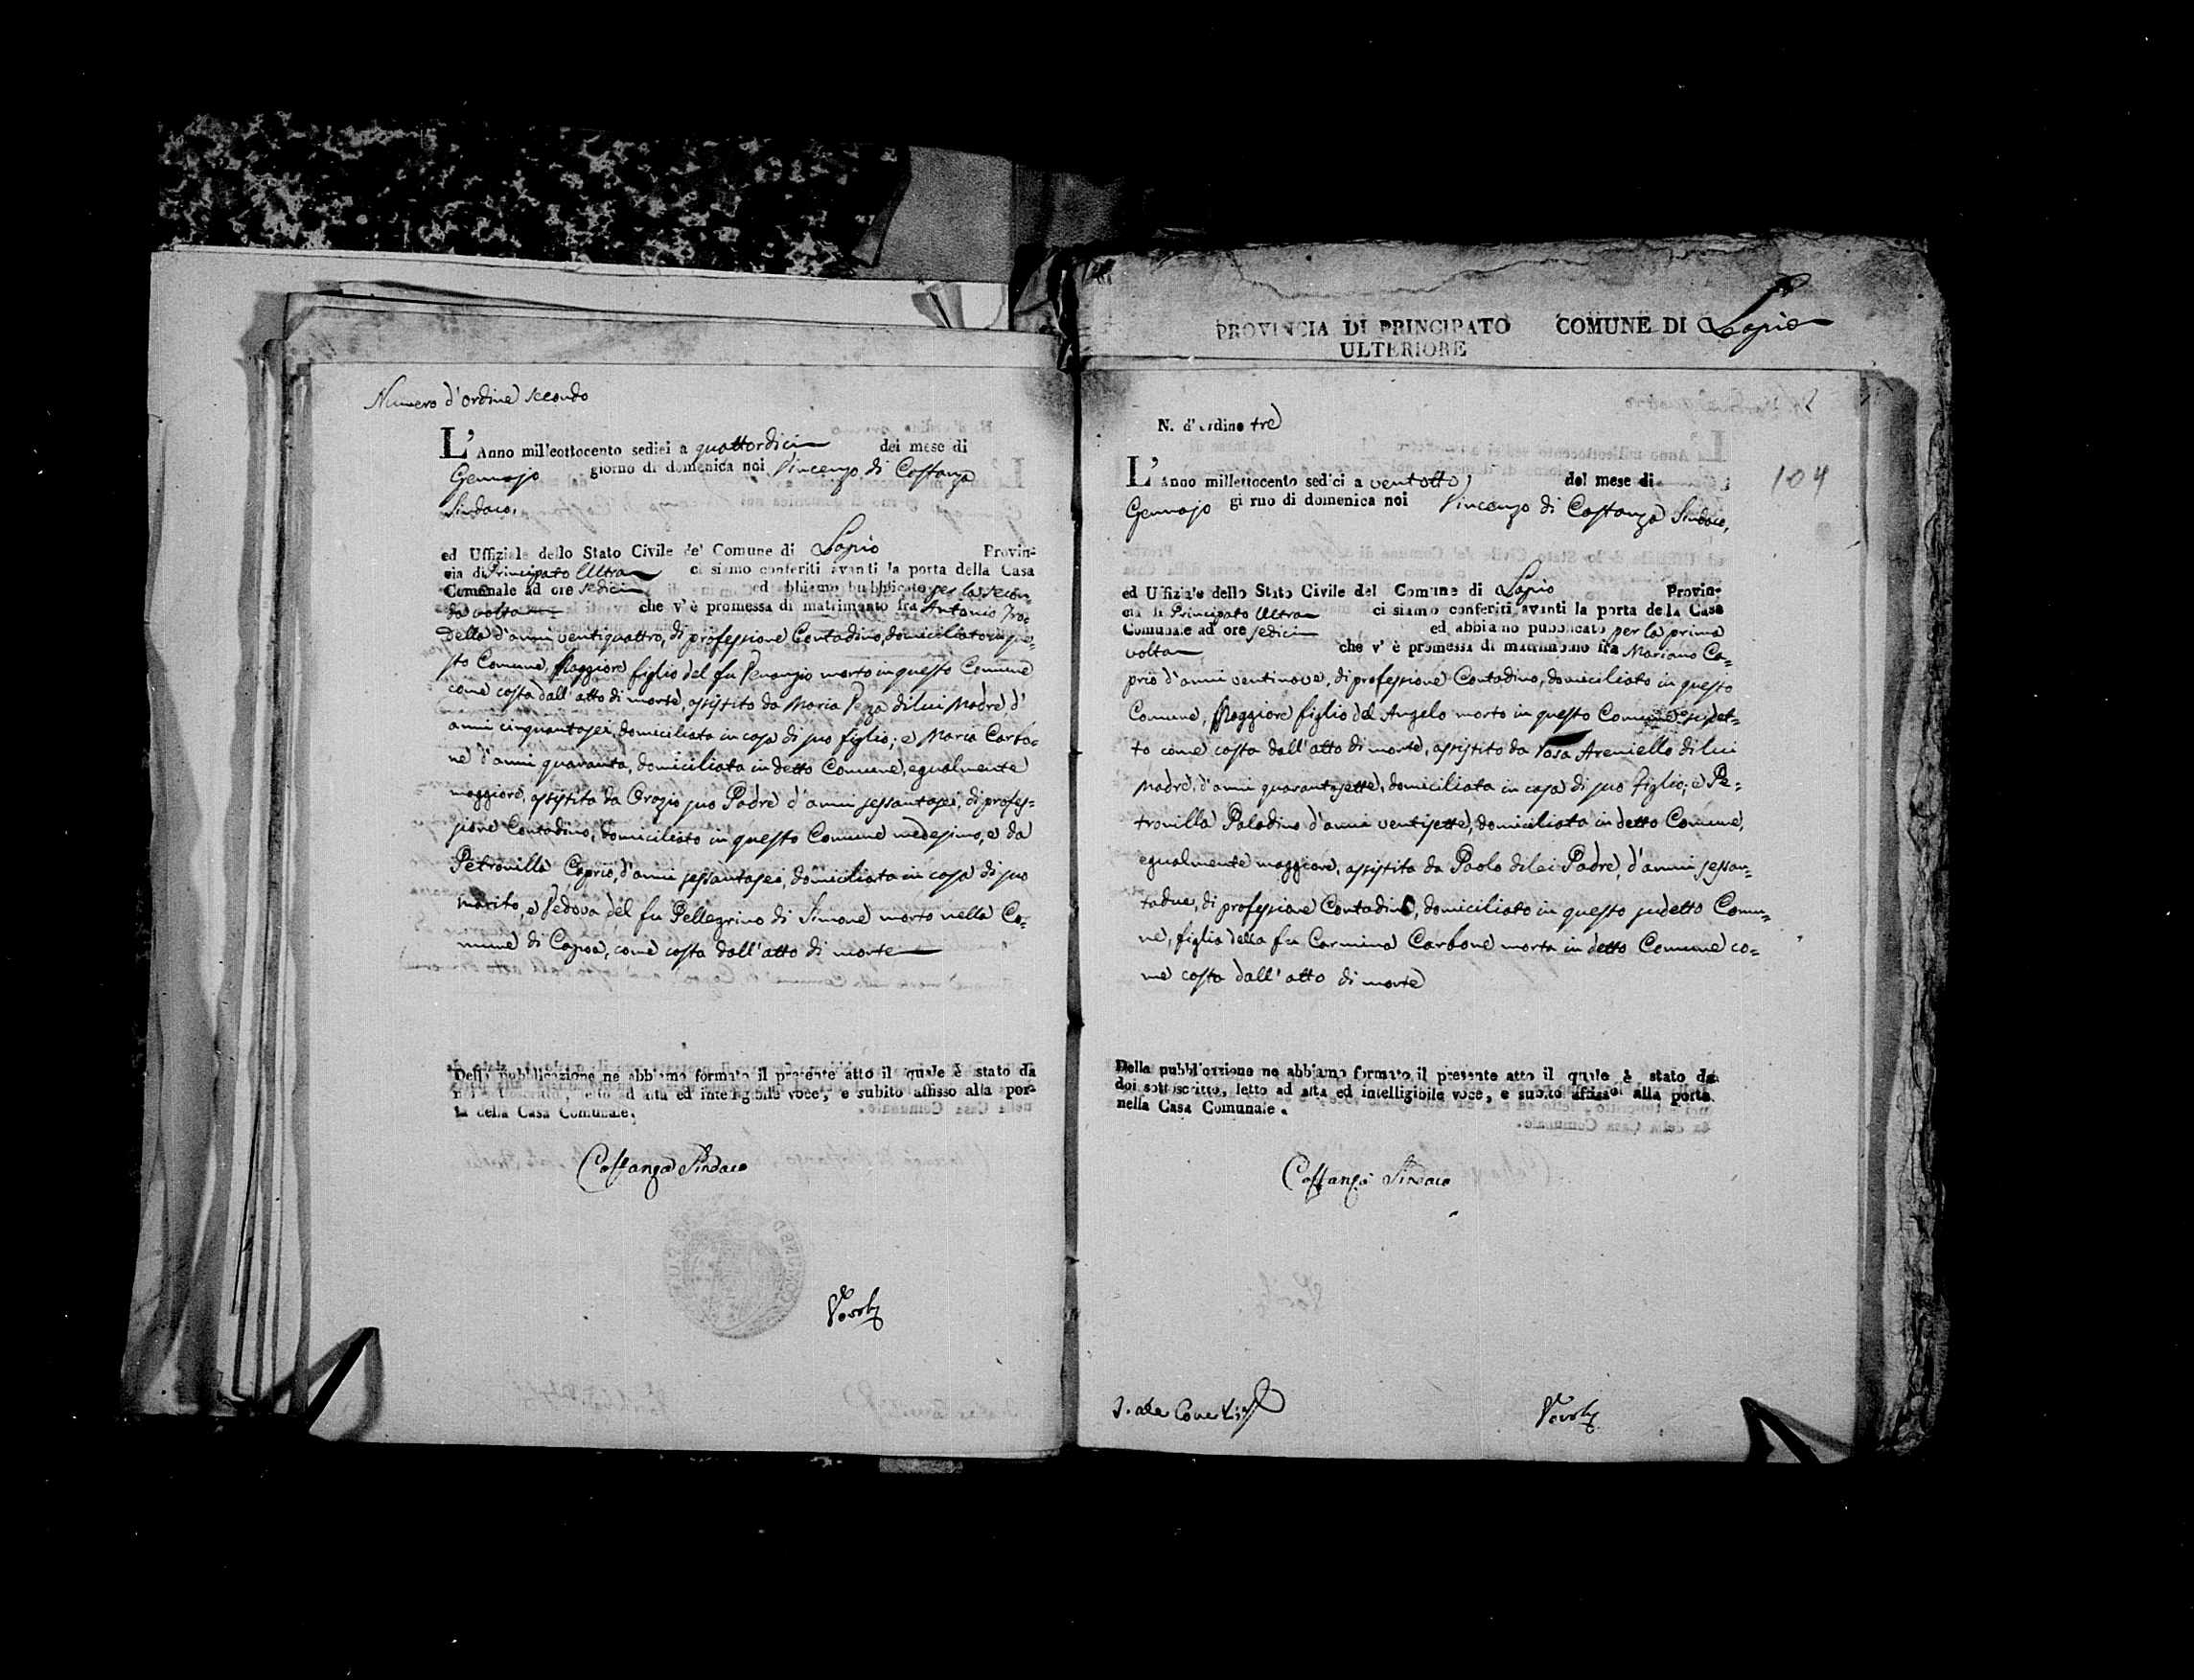 Numero d'ordine secondo
L'Anno milleottocento sedici a quattordici del mese di
Gennajo giorno di domenica noi Vincenzo di Costanza
Sindaco,
ed Uffiziale dello Stato Civile de' Comune di Lapio Provin-
cia di Principato Ultra ci siamo conferiti avanti la porta della Casa
Comunale ad ore sedici ed abbiamo pubblicato per la secon-
da volta che v' è promessa di matrimonio fra Antonio
della d'anni ventiquattro, di professione Contadino, domiciliato in que-
sto Comune, Maggiore figlio del fu Venanzio morto in questo Comune
come costa dall'atto di morte, assistito da Maria di lui Madre d'
anni cinquantasei, domiciliata in casa di suo figlio; e Maria Carbo-
ne d'anni quaranta, domiciliata in detto Comune, egualmente
maggiore, assistita da Orazio suo Padre d'anni sessantasei, di profes-
sione Contadino, domiciliato in questo Comune medesimo, e da
Petronilla Caprio, d'anni sessantasei, domiciliata in casa di suo
marito, e Vedova del fu Pellegrino di Simone morto nella Co-
mune di Capoa, come costa dall'atto di morte
Della pubblicazione ne abbiamo formato il presente atto il quale è stato da
noi sottoscritto, letto ad alta ed intelligibile voce, e subito affisso alla por-
ta della Casa Comunale.
Costanza Sindaco
PROVINCIA DI PRINCIPATO COMUNE DI Lapio
ULTERIORE
104
N. d'ordine tre
L'Anno millettocento sedici a ventotto del mese di
Gennajo giorno di domenica noi Vincenzo di Costanza Sindaco,
ed Uffiziale dello Stato Civile del Comune di Lapio Provin-
cia di Principato Ultra ci siamo conferiti avanti la porta della Casa
Comunale ad ore sedici ed abbiamo pubblicato per la prima
volta che v' è promessa di matrimonio fra Mariano Ca-
prio d'anni ventinove, di professione Contadino, domiciliato in questo
Comune, Maggiore figlio del Angelo morto in questo Comune sudet-
to come costa dall'atto di morte, assistito da Rosa Areniello di lui
Madre, d'anni quarantasette, domiciliata in casa di suo figlio; e Pe-
tronilla Paladino d'anni ventisette, domiciliata in detto Comune,
egualmente maggiore, assistita da Paolo di lei Padre, d'anni sessan-
tadue, di professione Contadino, domiciliato in questo sudetto Comu-
ne, figlia della fu Carmina Carbone morta in detto Comune co-
me costa dall'atto di morte
Della pubblicazione ne abbiamo formato il presente atto il quale è stato da
doi sottoscritto, letto ad alta ed intelligibile voce, e subito affisso alla porta
nella Casa Comunale.
Costanza Sindaco